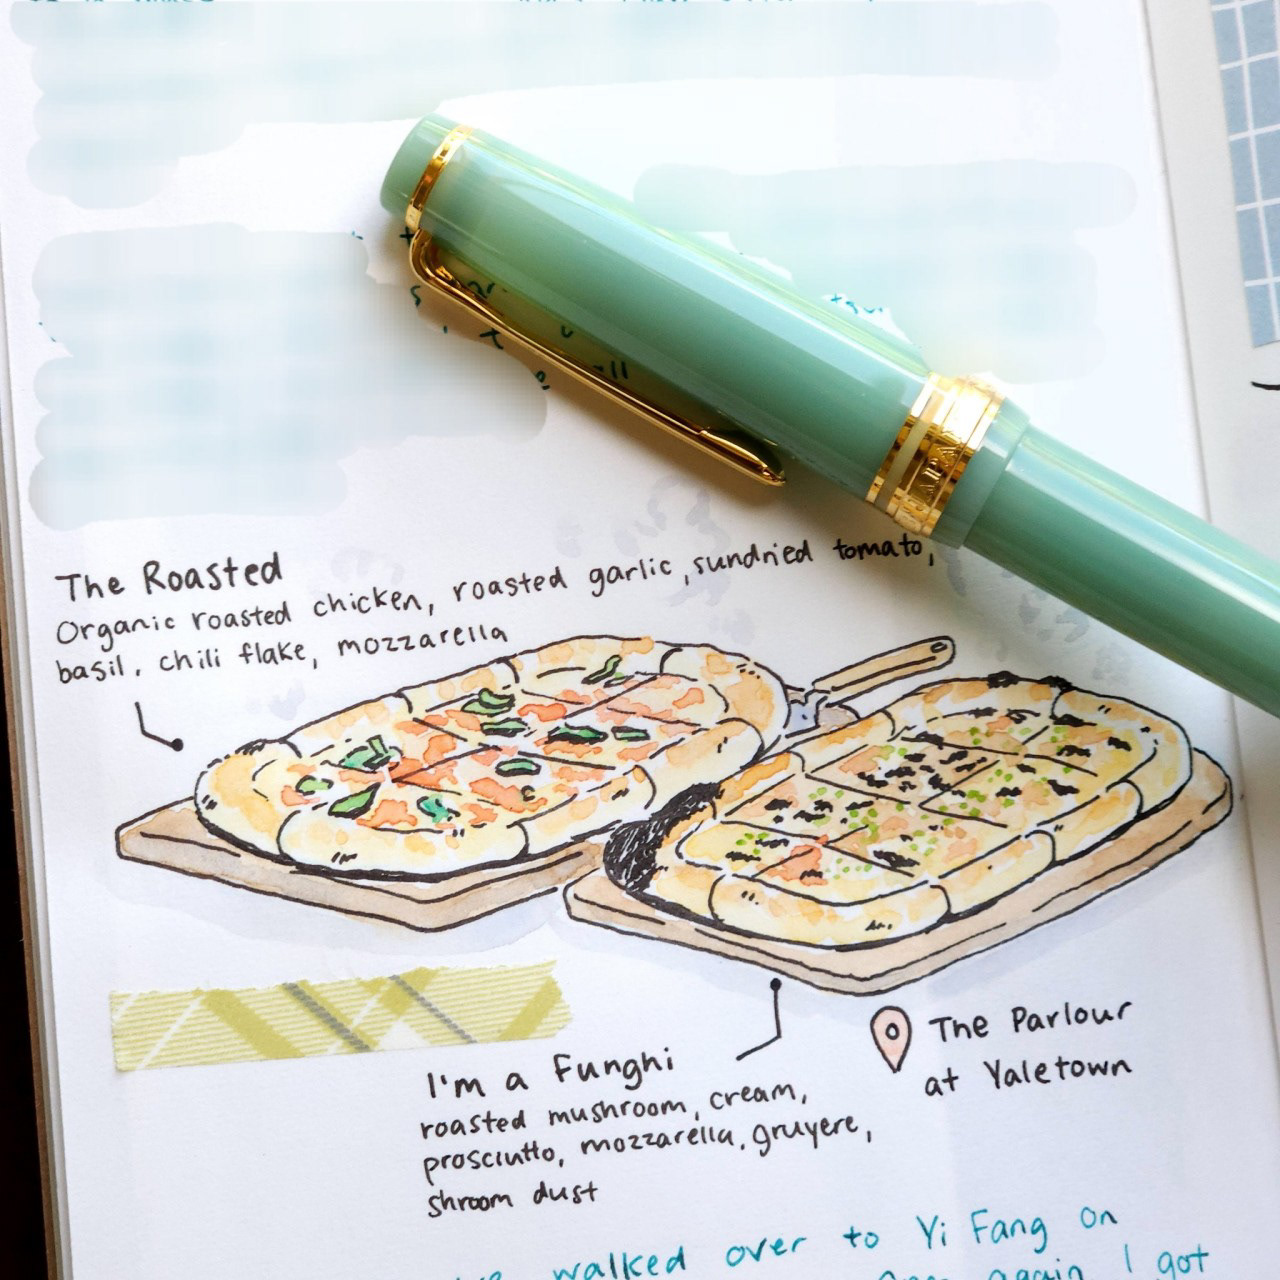 The Roasted
Organic roasted chicken, roasted garlic, sundried tomato,
basil, chili flake, mozzarella
I'm a Funghi
roasted mushroom, cream,
prosciutto, mozzarella, gruyere,
shroom dust
The Parlour
at Yaletown
walked over to Yi Fang on
again I got